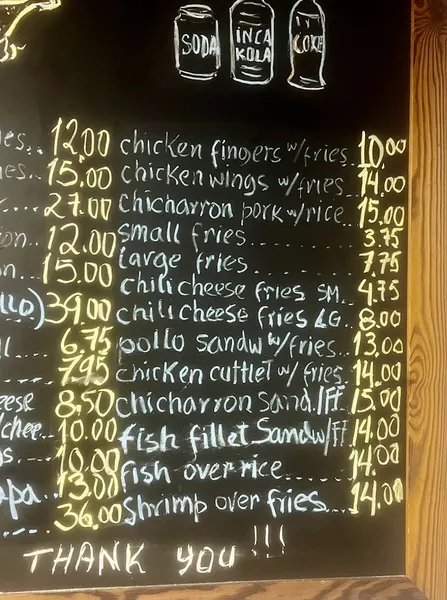 SODA
INCA
KOLA
COKE
es.. 12.00 chicken fingers w/fries 10.00
es... 15.00 chicken wings w/fries 14.00
... 27.00 chicharron pork w/rice.. 15.00
on.. 12.00 small fries............ 3.75
n... 15.00 large fries............ 7.75
LLO) 39.00 chili cheese fries SM.. 4.75
l.... 6.75 chili cheese fries LG.. 8.00
.... 7.95 pollo sandw w/fries.. 13.00
eese 8.50 chicken cuttlet w/ fries. 14.00
/chee.. 10.00 chicharron Sand./FF. 15.00
s... 10.00 fish fillet Sandw/FF 14.00
apa.. 13.00 fish over rice..... 14.00
.... 36.00 shrimp over fries... 14.00
THANK YOU!!!